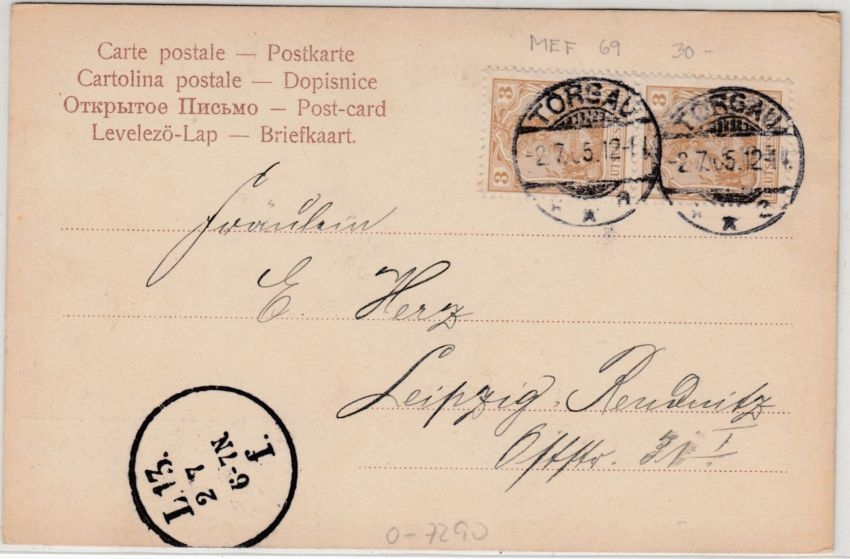 MEF 69 30-
Carte postale — Postkarte
Cartolina postale — Dopisnice
Открытое Письмо — Post-card
Levelezö-Lap — Briefkaart.
3
3
3
TORGAU
-2.7.05.12-1
* * a
TORGAU
-2.7.05.12-1
* * a
Fräulein
E. Herz
Leipzig-Reudnitz
Oststr. I
L.13.
2 7
6-7N.
f.
0-7290